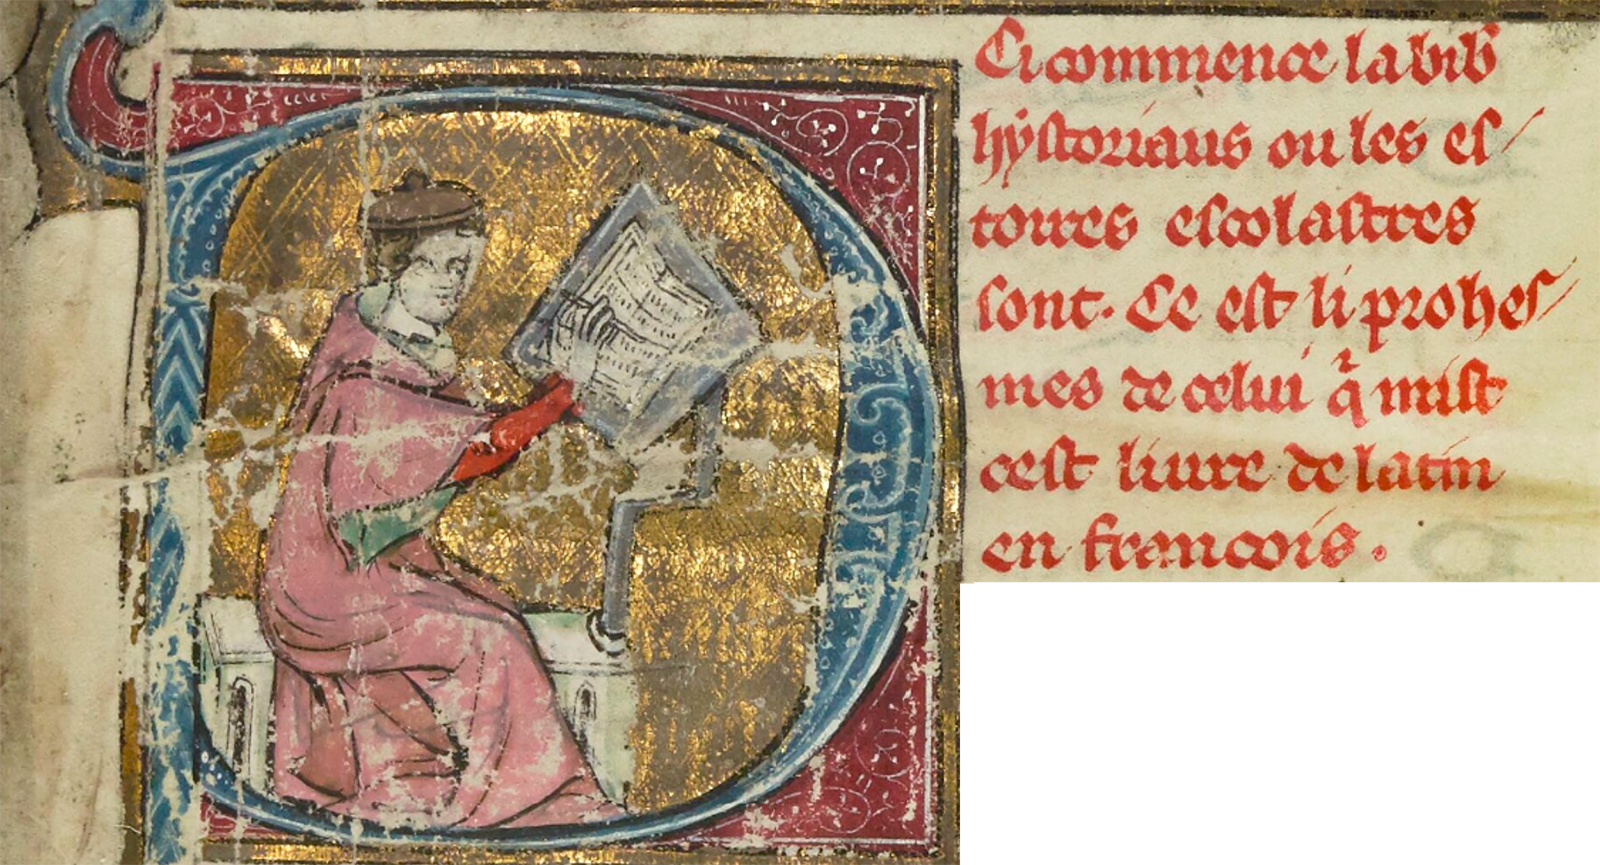 Ci commence la bib̄
hẏstoriaus ou les es/
toires escolastres
sont. Ce est li prohes/
mes de celui q̄ mist
cest liure de latin
en francois.